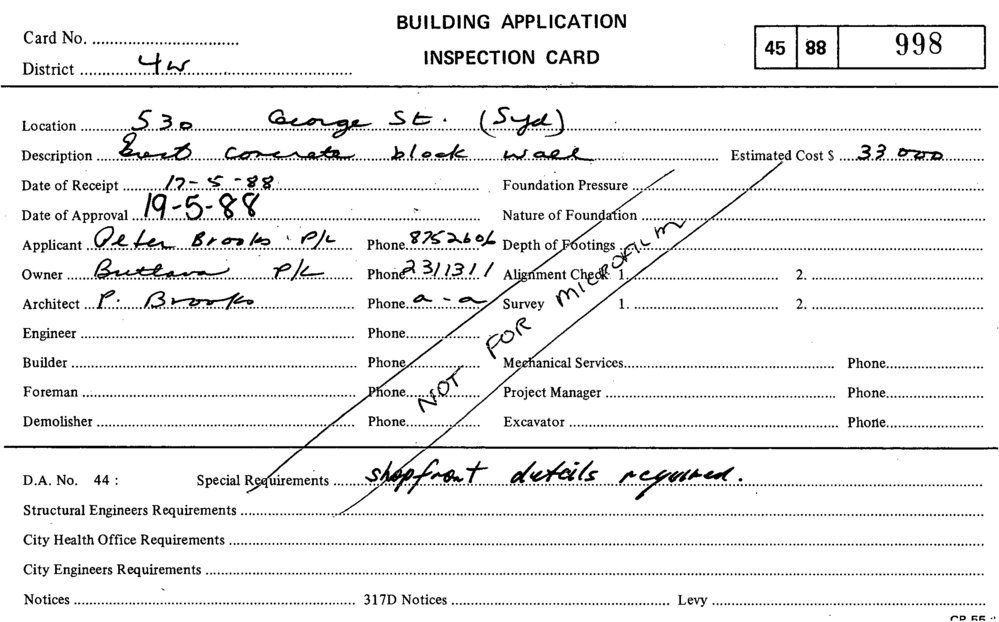 BUILDING APPLICATION
INSPECTION CARD
Card No.
45 88 998
District 4W
Location 530 George St. (Syd)
Description Erect concrete block wall Estimated Cost $ 33 000
Date of Receipt 17-5-88 Foundation Pressure
Date of Approval 19-5-88 Nature of Foundation
Applicant Peter Brooks P/L Phone 8752606 Depth of Footings
Owner P/L Phone 2311311 Alignment Check 1. 2.
Architect P. Brooks Phone a - a Survey 1. 2.
Engineer Phone
Builder Phone Mechanical Services Phone
Foreman Phone Project Manager Phone
Demolisher Phone Excavator Phone
NOT FOR MICROFILM
D.A. No. 44 : Special Requirements shopfront details required.
Structural Engineers Requirements
City Health Office Requirements
City Engineers Requirements
Notices 317D Notices Levy
CP 55